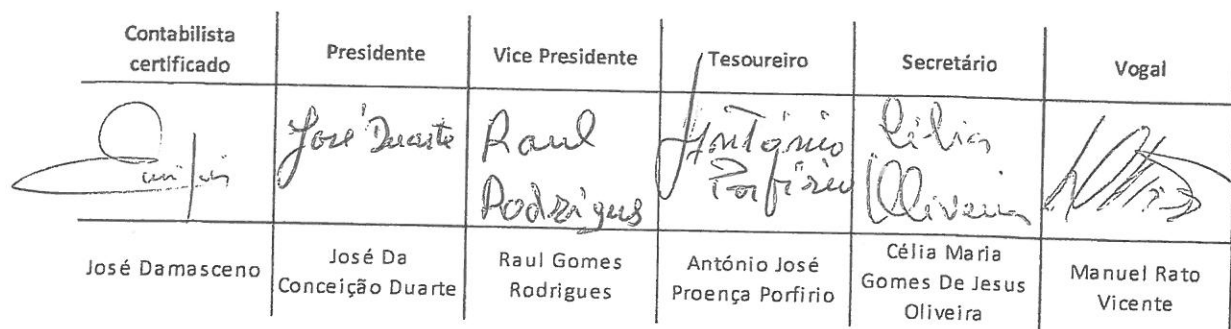 Contabilista certificado
Presidente
Vice Presidente
Tesoureiro
Secretário
Vogal
José Duarte
Raul
Rodrigues
António
Porfirio
Célia
Oliveira
José Damasceno
José Da
Conceição Duarte
Raul Gomes
Rodrigues
António José
Proença Porfirio
Célia Maria
Gomes De Jesus
Oliveira
Manuel Rato
Vicente